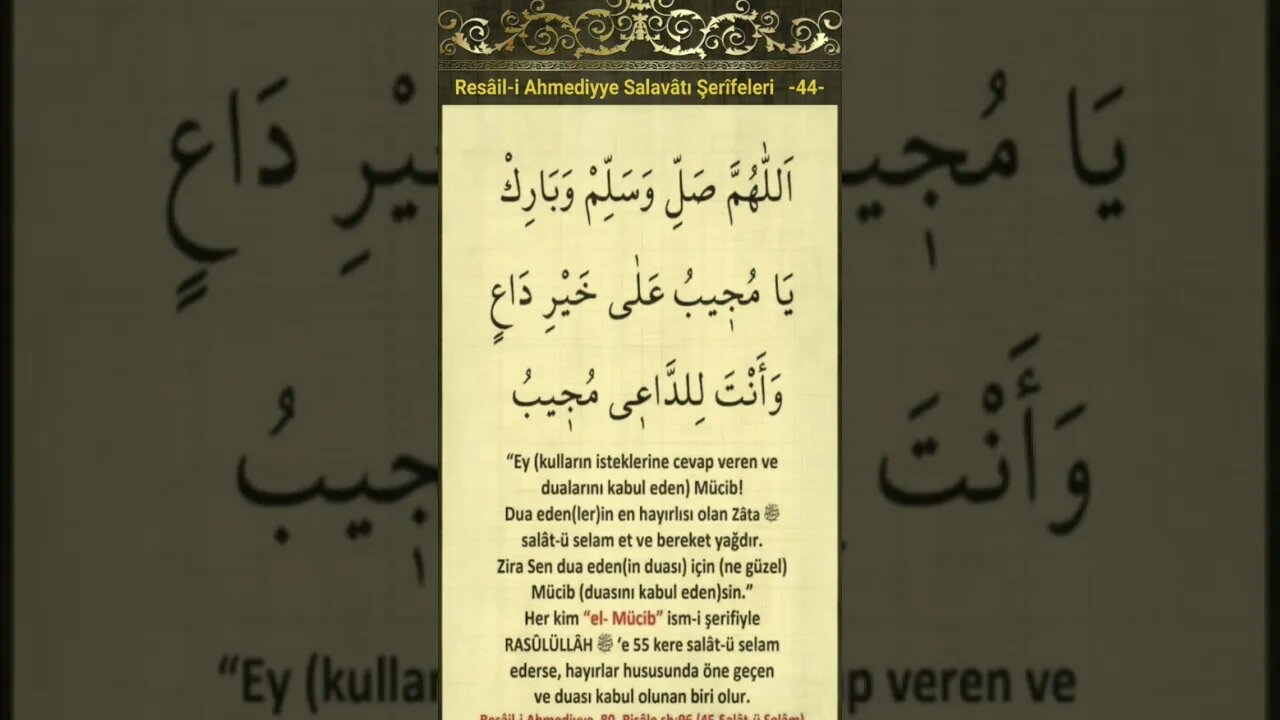 Resâil-i Ahmediyye Salavâtı Şerîfeleri -44-
اَللّٰهُمَّ صَلِّ وَسَلِّمْ وَبَارِكْ
يَا مُجٖيبُ عَلٰى خَيْرِ دَاعٍ
وَأَنْتَ لِلدَّاعٖى مُجٖيبُ
“Ey (kulların isteklerine cevap veren ve
dualarını kabul eden) Mücib!
Dua eden(ler)in en hayırlısı olan Zâta ﷺ
salât-ü selam et ve bereket yağdır.
Zira Sen dua eden(in duası) için (ne güzel)
Mücib (duasını kabul eden)sin.”
Her kim “el- Mücib” ism-i şerifiyle
RASÛLÜLLÂH ﷺ ‘e 55 kere salât-ü selam
ederse, hayırlar hususunda öne geçen
ve duası kabul olunan biri olur.
Resâil-i Ahmediyye, 80. Risâle sh:96 (45.Salât-ü Selâm)